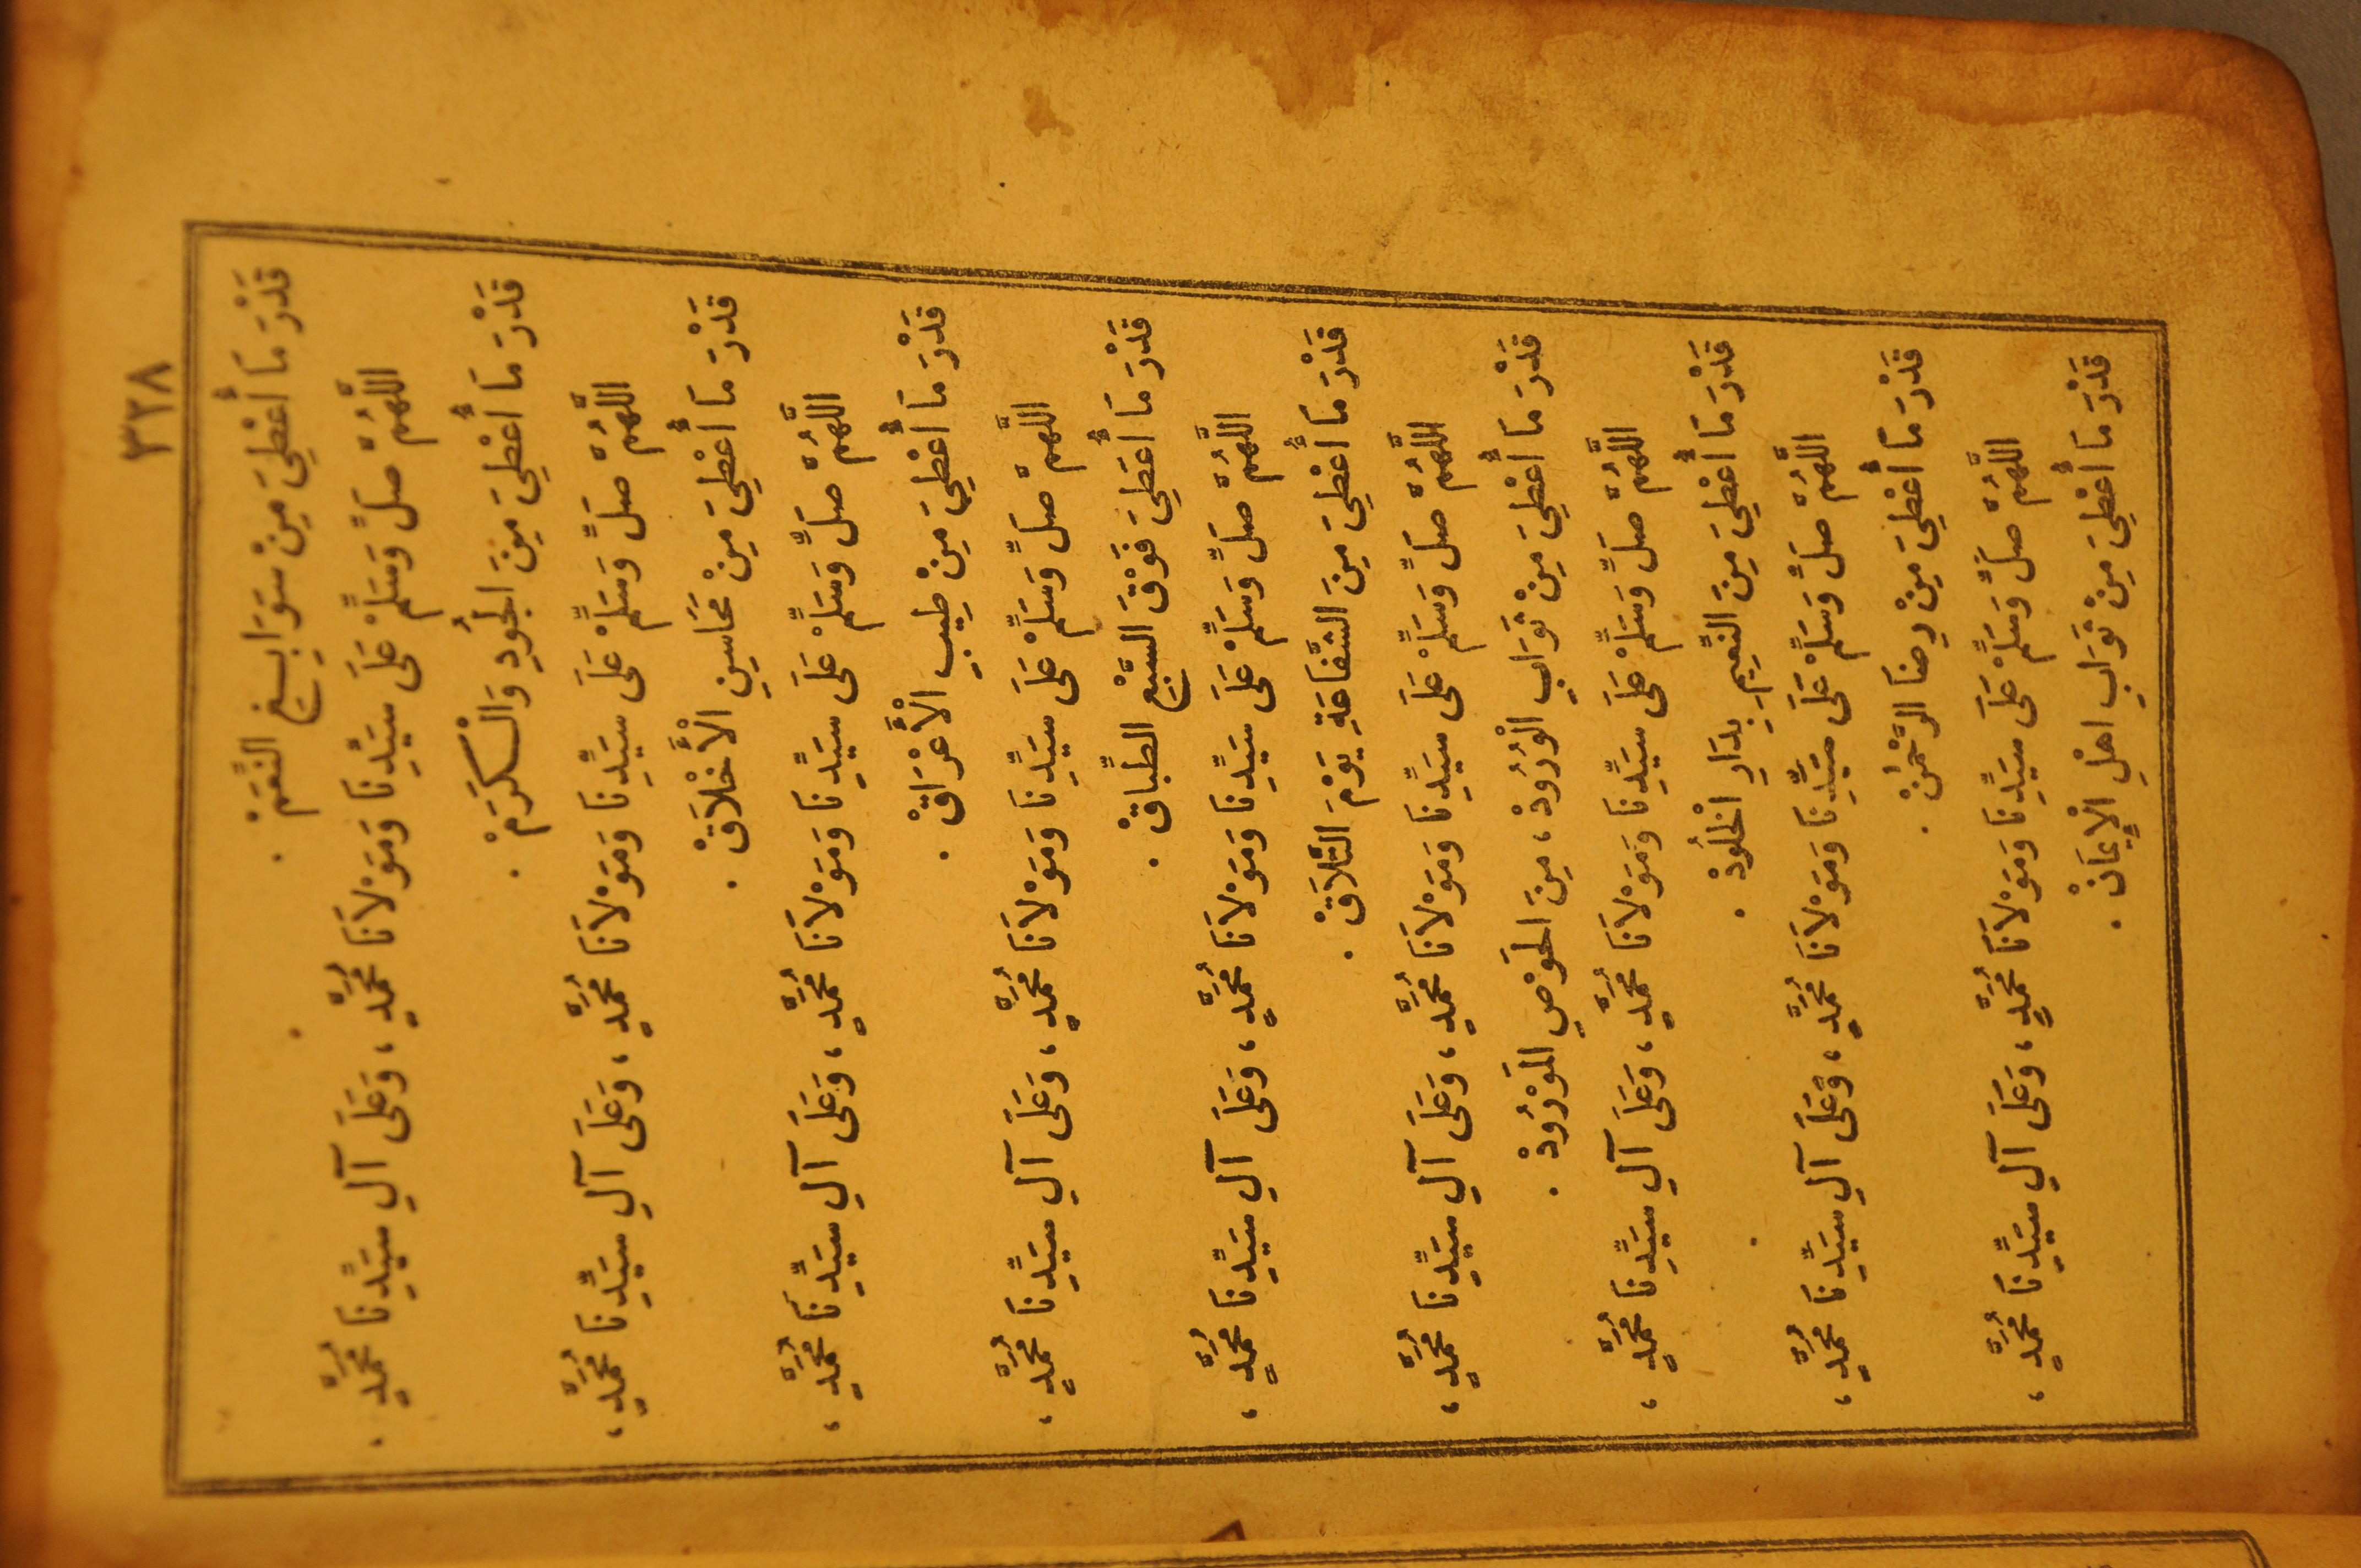 ٣٣٨
قَدْرَ مَا أُعْطِيَ مِنْ سَوَابِغِ النَّعَمْ .
اللَّهُمَّ صَلِّ وَسَلِّمْ عَلَى سَيِّدِنَا وَمَوْلَانَا مُحَمَّدٍ ، وَعَلَى آلِ سَيِّدِنَا مُحَمَّدٍ .
قَدْرَ مَا أُعْطِيَ مِنَ الْجُودِ وَالْكَرَمْ .
اللَّهُمَّ صَلِّ وَسَلِّمْ عَلَى سَيِّدِنَا وَمَوْلَانَا مُحَمَّدٍ ، وَعَلَى آلِ سَيِّدِنَا مُحَمَّدٍ ،
قَدْرَ مَا أُعْطِيَ مِنْ مَحَاسِنِ الْأَخْلَاقْ .
اللَّهُمَّ صَلِّ وَسَلِّمْ عَلَى سَيِّدِنَا وَمَوْلَانَا مُحَمَّدٍ ، وَعَلَى آلِ سَيِّدِنَا مُحَمَّدٍ ،
قَدْرَ مَا أُعْطِيَ مِنْ طِيبِ الْأَعْرَاقْ .
اللَّهُمَّ صَلِّ وَسَلِّمْ عَلَى سَيِّدِنَا وَمَوْلَانَا مُحَمَّدٍ ، وَعَلَى آلِ سَيِّدِنَا مُحَمَّدٍ ،
قَدْرَ مَا أُعْطِيَ فَوْقَ السَّبْعِ الطِّبَاقْ .
اللَّهُمَّ صَلِّ وَسَلِّمْ عَلَى سَيِّدِنَا وَمَوْلَانَا مُحَمَّدٍ ، وَعَلَى آلِ سَيِّدِنَا مُحَمَّدٍ ،
قَدْرَ مَا أُعْطِيَ مِنَ الشَّفَاعَةِ يَوْمَ التَّلَاقْ .
اللَّهُمَّ صَلِّ وَسَلِّمْ عَلَى سَيِّدِنَا وَمَوْلَانَا مُحَمَّدٍ ، وَعَلَى آلِ سَيِّدِنَا مُحَمَّدٍ ،
قَدْرَ مَا أُعْطِيَ مِنْ ثَوَابِ الْوُرُودْ ، مِنَ الْحَوْضِ الْمَوْرُودْ .
اللَّهُمَّ صَلِّ وَسَلِّمْ عَلَى سَيِّدِنَا وَمَوْلَانَا مُحَمَّدٍ ، وَعَلَى آلِ سَيِّدِنَا مُحَمَّدٍ ،
قَدْرَ مَا أُعْطِيَ مِنَ النَّعِيمِ بِدَارِ الْخُلُودْ .
اللَّهُمَّ صَلِّ وَسَلِّمْ عَلَى سَيِّدِنَا وَمَوْلَانَا مُحَمَّدٍ ، وَعَلَى آلِ سَيِّدِنَا مُحَمَّدٍ ،
قَدْرَ مَا أُعْطِيَ مِنْ رِضَا الرَّحْمٰنْ .
اللَّهُمَّ صَلِّ وَسَلِّمْ عَلَى سَيِّدِنَا وَمَوْلَانَا مُحَمَّدٍ ، وَعَلَى آلِ سَيِّدِنَا مُحَمَّدٍ ،
قَدْرَ مَا أُعْطِيَ مِنْ ثَوَابِ اهْلِ الْإِيمَانْ .